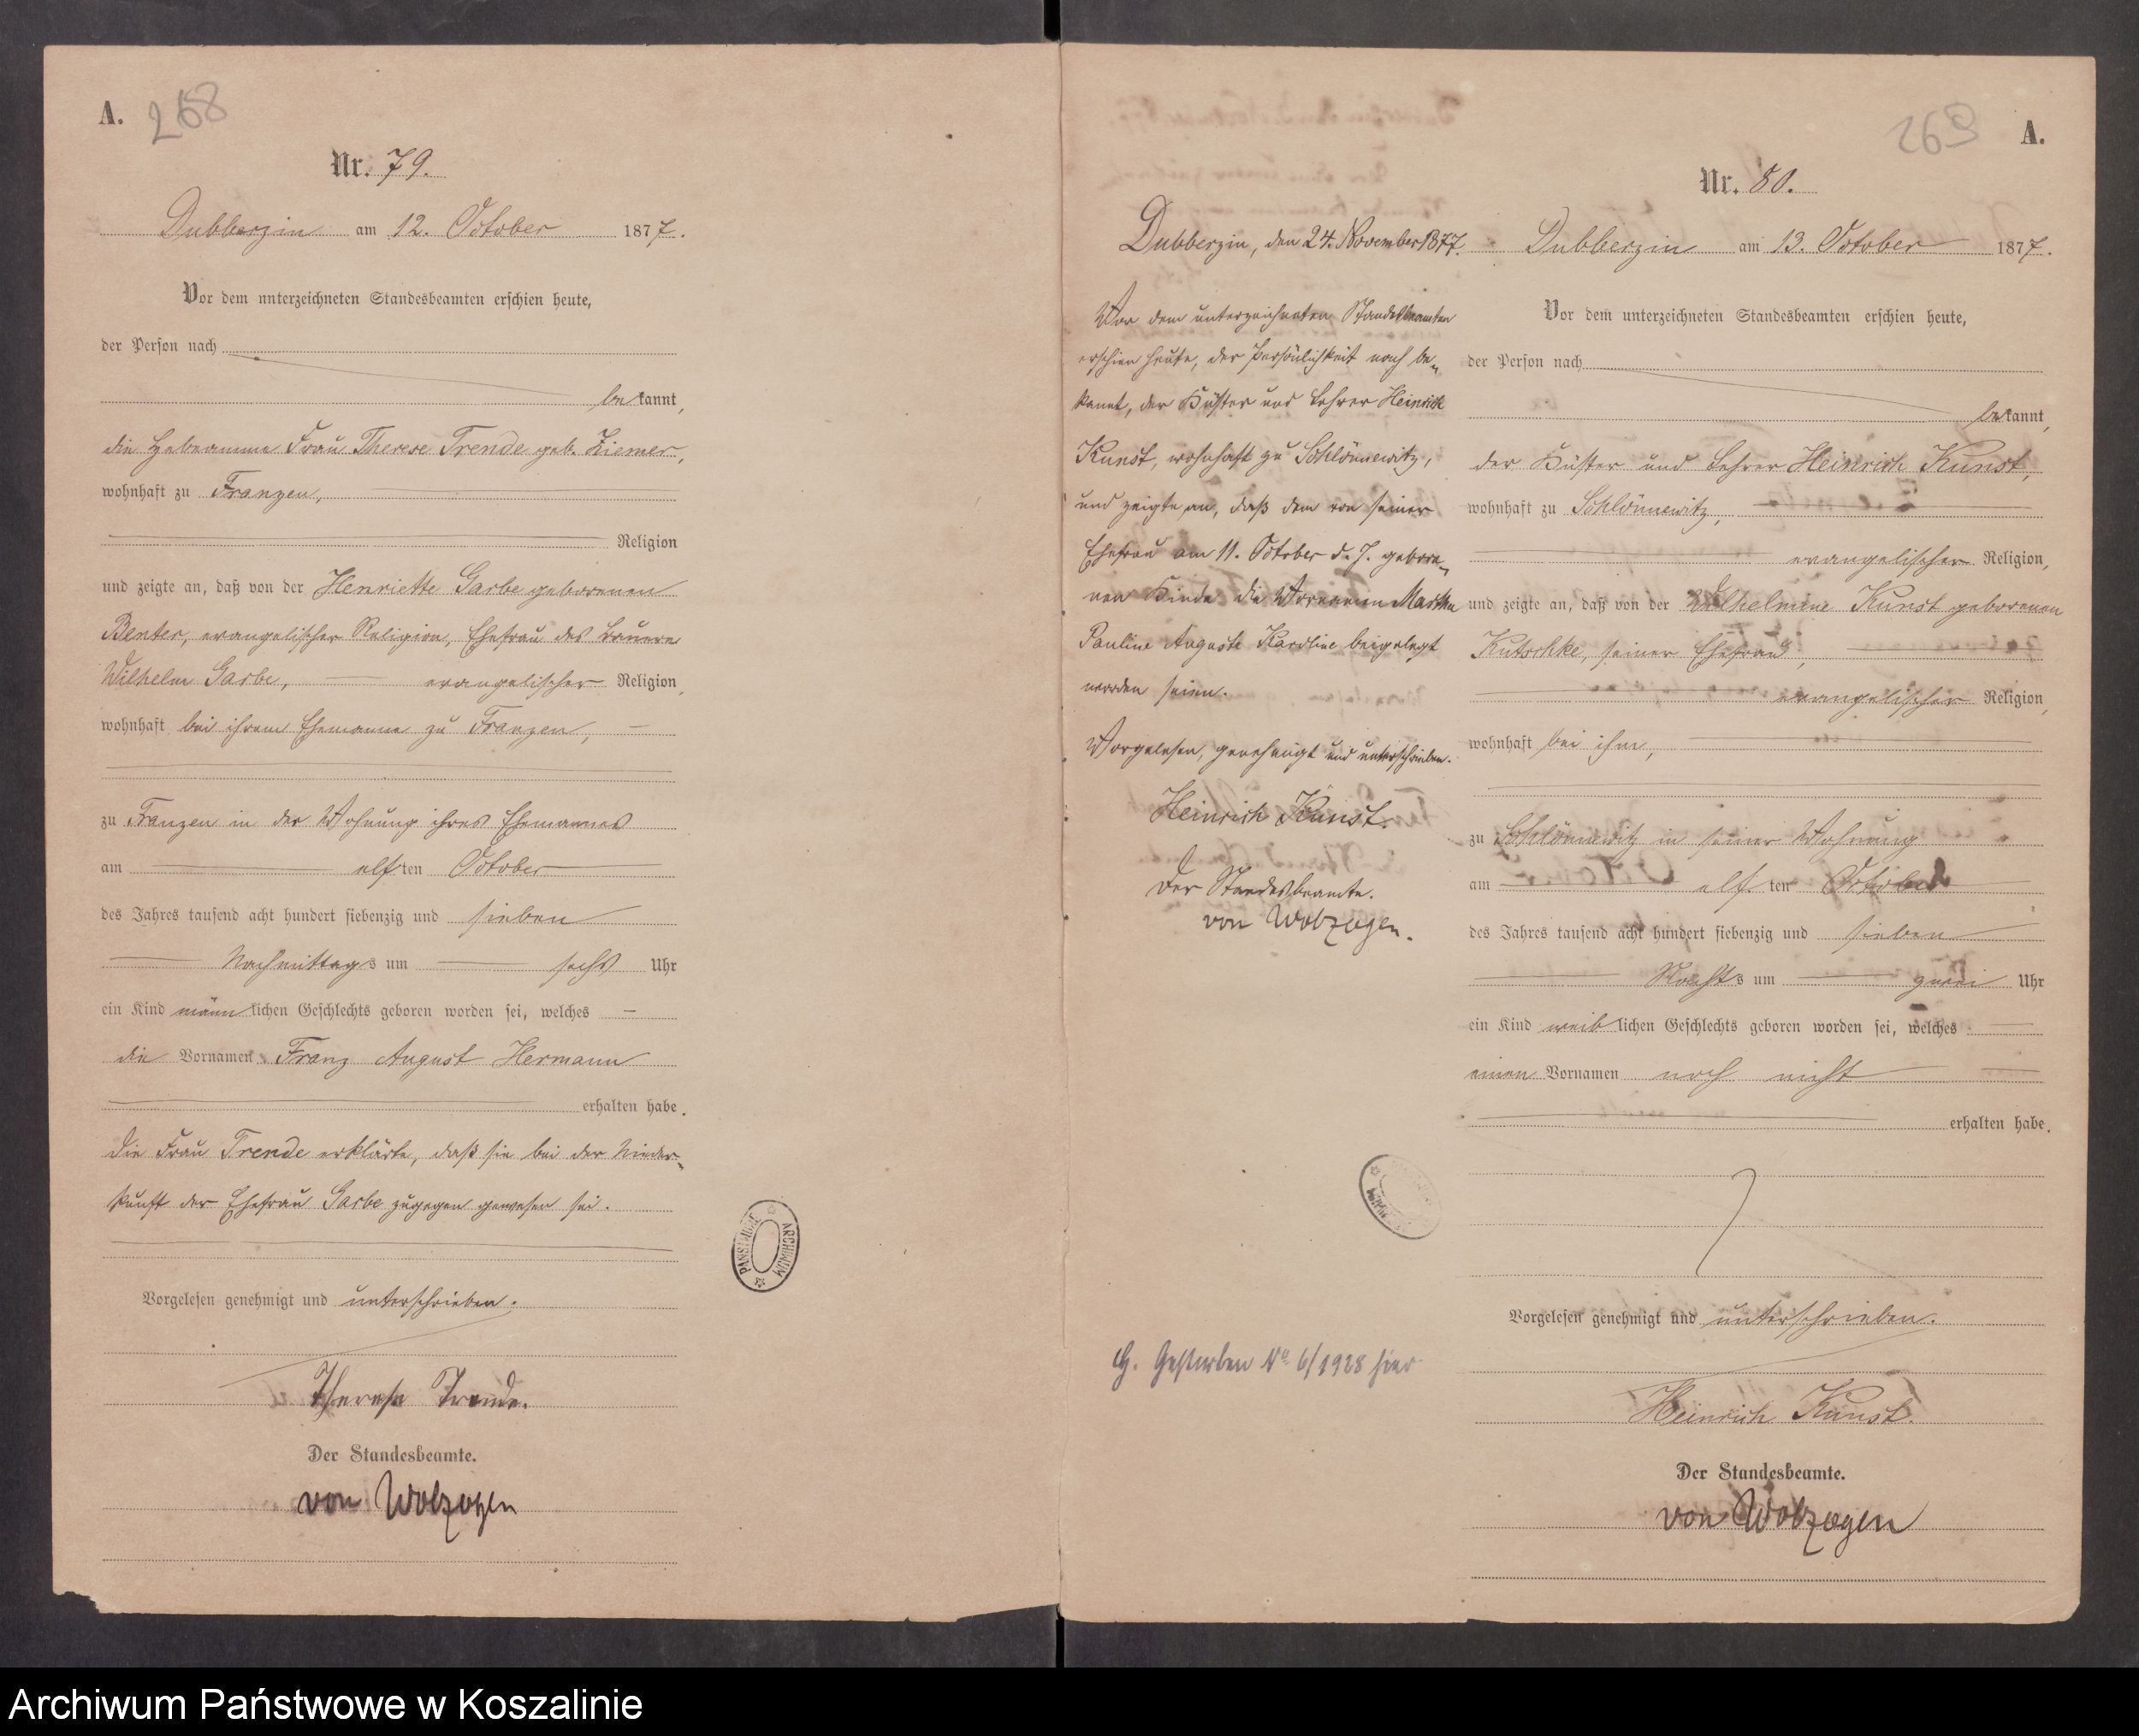 A. 268
Nr. 79.
Dubberzin am 12. October 1877.
Vor dem unterzeichneten Standesbeamten erschien heute,
der Person nach
bekannt,
die Hebeamme Frau Therese Trende geb. Ziemer,
wohnhaft zu Franzen,
Religion
und zeigte an, daß von der Henriette Garbe geborenen
Benter, evangelischer Religion, Ehefrau des Bauern
Wilhelm Garbe, evangelischer Religion,
wohnhaft bei ihrem Ehemanne zu Franzen,
zu Franzen in der Wohnung ihres Ehemannes
am elften October
des Jahres tausend acht hundert siebenzig und sieben
Nachmittags um sechs Uhr
ein Kind männlichen Geschlechts geboren worden sei, welches
die Vornamen Franz August Hermann
erhalten habe.
Die Frau Trende erklärte, daß sie bei der Nieder-
kunft der Ehefrau Garbe zugegen gewesen sei.
Vorgelesen genehmigt und unterschrieben.
Therese Trende.
Der Standesbeamte.
von Wolzogen
PAŃSTWOWE ARCHIWUM
Dubberzin, den 24. November 1877.
Vor dem unterzeichneten Standesbeamten
erschien heute, der Persönlichkeit nach be-
kannt, der Küster und Lehrer Heinrich
Kunst, wohnhaft zu Schlönnewitz,
und zeigte an, daß dem von seiner
Ehefrau am 11. October d. J. gebore-
nen Kinde die Vornamen Martha
Pauline Auguste Karoline beigelegt
worden seien.
Vorgelesen, genehmigt und unterschrieben.
Heinrich Kunst.
Der Standesbeamte.
von Wolzogen.
G. Gestorben No 6/1928 hier
269 A.
Nr. 80.
Dubberzin am 13. October 1877.
Vor dem unterzeichneten Standesbeamten erschien heute,
der Person nach
bekannt,
der Küster und Lehrer Heinrich Kunst,
wohnhaft zu Schlönnewitz,
evangelischer Religion,
und zeigte an, daß von der Wilhelmine Kunst geborenen
Kutschke, seiner Ehefrau,
evangelischer Religion,
wohnhaft bei ihm,
zu Schlönnewitz in seiner Wohnung
am elften October
des Jahres tausend acht hundert siebenzig und sieben
Nachts um zwei Uhr
ein Kind weiblichen Geschlechts geboren worden sei, welches
einen Vornamen noch nicht
erhalten habe.
Vorgelesen genehmigt und unterschrieben.
Heinrich Kunst.
Der Standesbeamte.
von Wolzogen
Archiwum Państwowe w Koszalinie